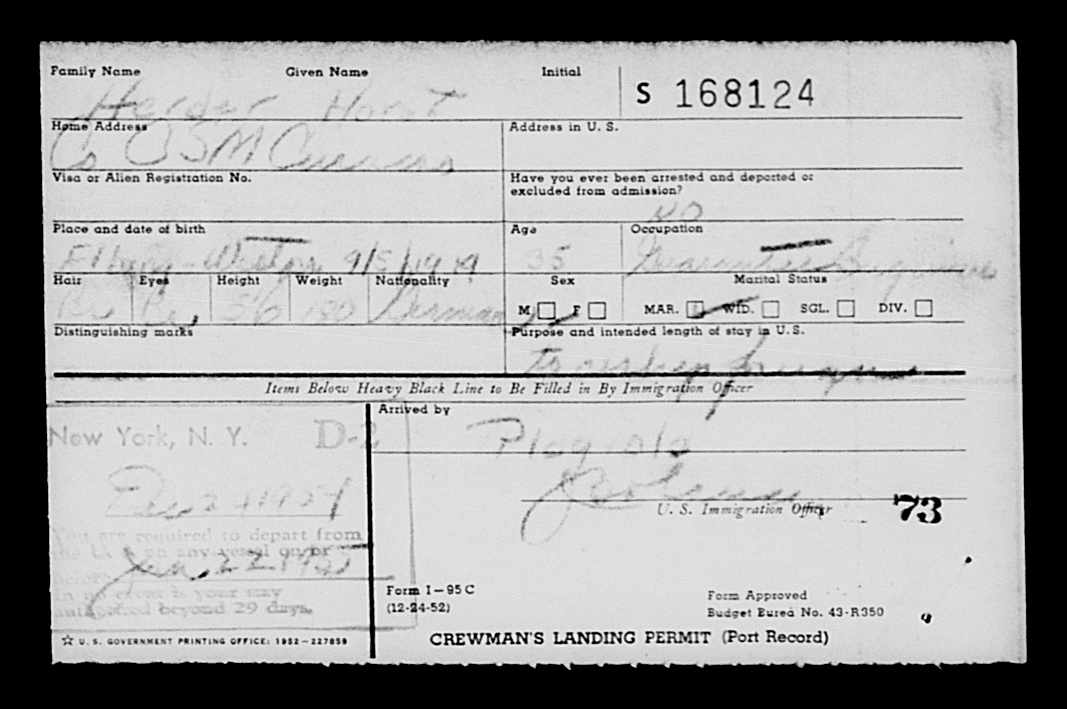 Family Name Given Name Initial
S 168124
Herder Horst
Home Address Address in U. S.
Co OSM
Visa or Alien Registration No. Have you ever been arrested and deported or
excluded from admission?
NO
Place and date of birth Age Occupation
Elbing - 9/5/1919 35 Guarantee
Hair Eyes Height Weight Nationality Sex Marital Status
Br Br 5/6 180 German M F MAR. WID. SGL. DIV.
Distinguishing marks Purpose and intended length of stay in U.S.
to
Items Below Heavy Black Line to Be Filled in By Immigration Officer
Arrived by
New York, N. Y. D-2
Dec 24 1954
You are required to depart from
the U. S. on any vessel on or
before Jan. 22 1955
In no event is your stay
authorized beyond 29 days.
U. S. Immigration Officer
73
Form I-95 C
(12-24-52)
Form Approved
Budget Bureau No. 43-R350
☆ U. S. GOVERNMENT PRINTING OFFICE: 1952-227859
CREWMAN'S LANDING PERMIT (Port Record)